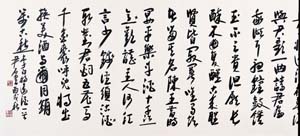 與君歌一曲請君
鐘鼓饌
玉不足貴但願長
醉不
賢皆寂寞惟有飲者
留其名陳王昔時
宴平樂斗酒十千
恣歡謔主人何為
言少錢徑須沽
取對君酌五花馬
千金裘呼兒將出
換美酒與爾同銷
萬古愁